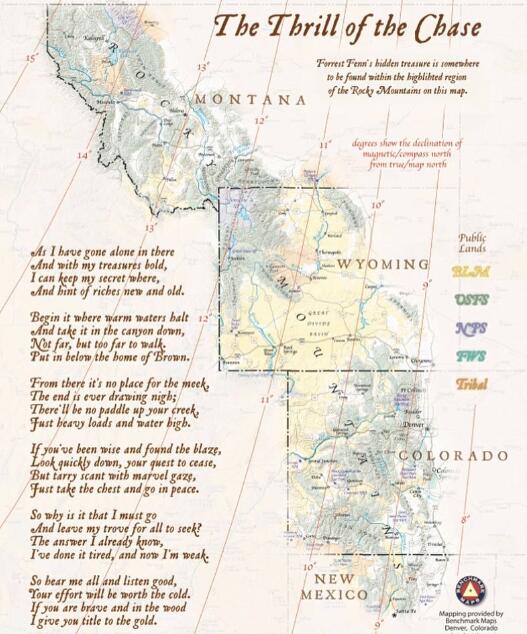 The Thrill of the Chase
Forrest Fenn's hidden treasure is somewhere
to be found within the highlihted region
of the Rocky Mountains on this map.
degrees show the declination of
magnetic/compass north
from true/map north
15°
13°
14°
12°
11°
13°
10°
9°
12°
11°
8°
10°
9°
ROCKY
MOUNTAINS
MONTANA
Kalispell
Missoula
Helena
WYOMING
GREAT
DIVIDE
BASIN
Cheyenne
COLORADO
Boulder
Denver
NEW
MEXICO
Santa Fe
Public
Lands
BLM
USFS
NPS
FWS
Tribal
As I have gone alone in there
And with my treasures bold,
I can keep my secret where,
And hint of riches new and old.
Begin it where warm waters halt
And take it in the canyon down,
Not far, but too far to walk.
Put in below the home of Brown.
From there it's no place for the meek,
The end is ever drawing nigh;
There'll be no paddle up your creek,
Just heavy loads and water high.
If you've been wise and found the blaze,
Look quickly down, your quest to cease,
But tarry scant with marvel gaze,
Just take the chest and go in peace.
So why is it that I must go
And leave my trove for all to seek?
The answer I already know,
I've done it tired, and now I'm weak.
So hear me all and listen good,
Your effort will be worth the cold.
If you are brave and in the wood
I give you title to the gold.
BENCHMARK
MAPS
Mapping provided by
Benchmark Maps
Denver, Colorado